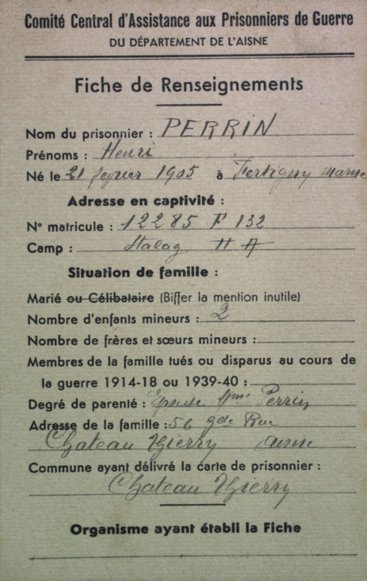 Comité Central d'Assistance aux Prisonniers de Guerre
DU DÉPARTEMENT DE L'AISNE
Fiche de Renseignements
Nom du prisonnier : PERRIN
Prénoms : Henri
Né le 21 fevrier 1905 à Fertigny Marne
Adresse en captivité :
N° matricule : 12285 F 132
Camp : Stalag II A
Situation de famille :
Marié ou Célibataire (Biffer la mention inutile)
Nombre d'enfants mineurs : 2
Nombre de frères et sœurs mineurs :
Membres de la famille tués ou disparus au cours de
la guerre 1914-18 ou 1939-40 :
Degré de parenté : Epouse Mme Perrin
Adresse de la famille : 56 gde Rue
Chateau Thierry Aisne
Commune ayant délivré la carte de prisonnier :
Chateau Thierry
Organisme ayant établi la Fiche